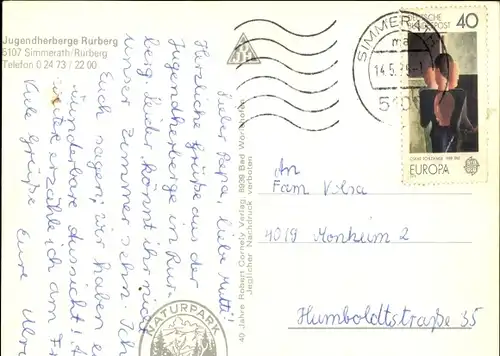 Jugendherberge Rurberg
5107 Simmerath/Rurberg
Telefon 0 24 73 / 22 00
Lieber Papa, liebe Mutti!
Herzliche Grüße aus der
Jugendherberge in Rur-
berg. Leider könnt ihr nicht
unser Zimmer sehn. Ich
Euch sagen, wir haben e
wunderbare Aussicht! A
erzähle ich am Fr
Viele Grüße Eure Ulri
40 Jahre Robert Cornely Verlag, 8939 Bad Wörishofen
Jeglicher Nachdruck verboten
NATURPARK
SIMMERATH
14.5.76
510
DEUTSCHE BUNDESPOST
40
OSKAR SCHLEMMER 1888-1943
EUROPA
CEPT
An
Fam Volsa
4019 Monheim 2
Humboldtstraße 35